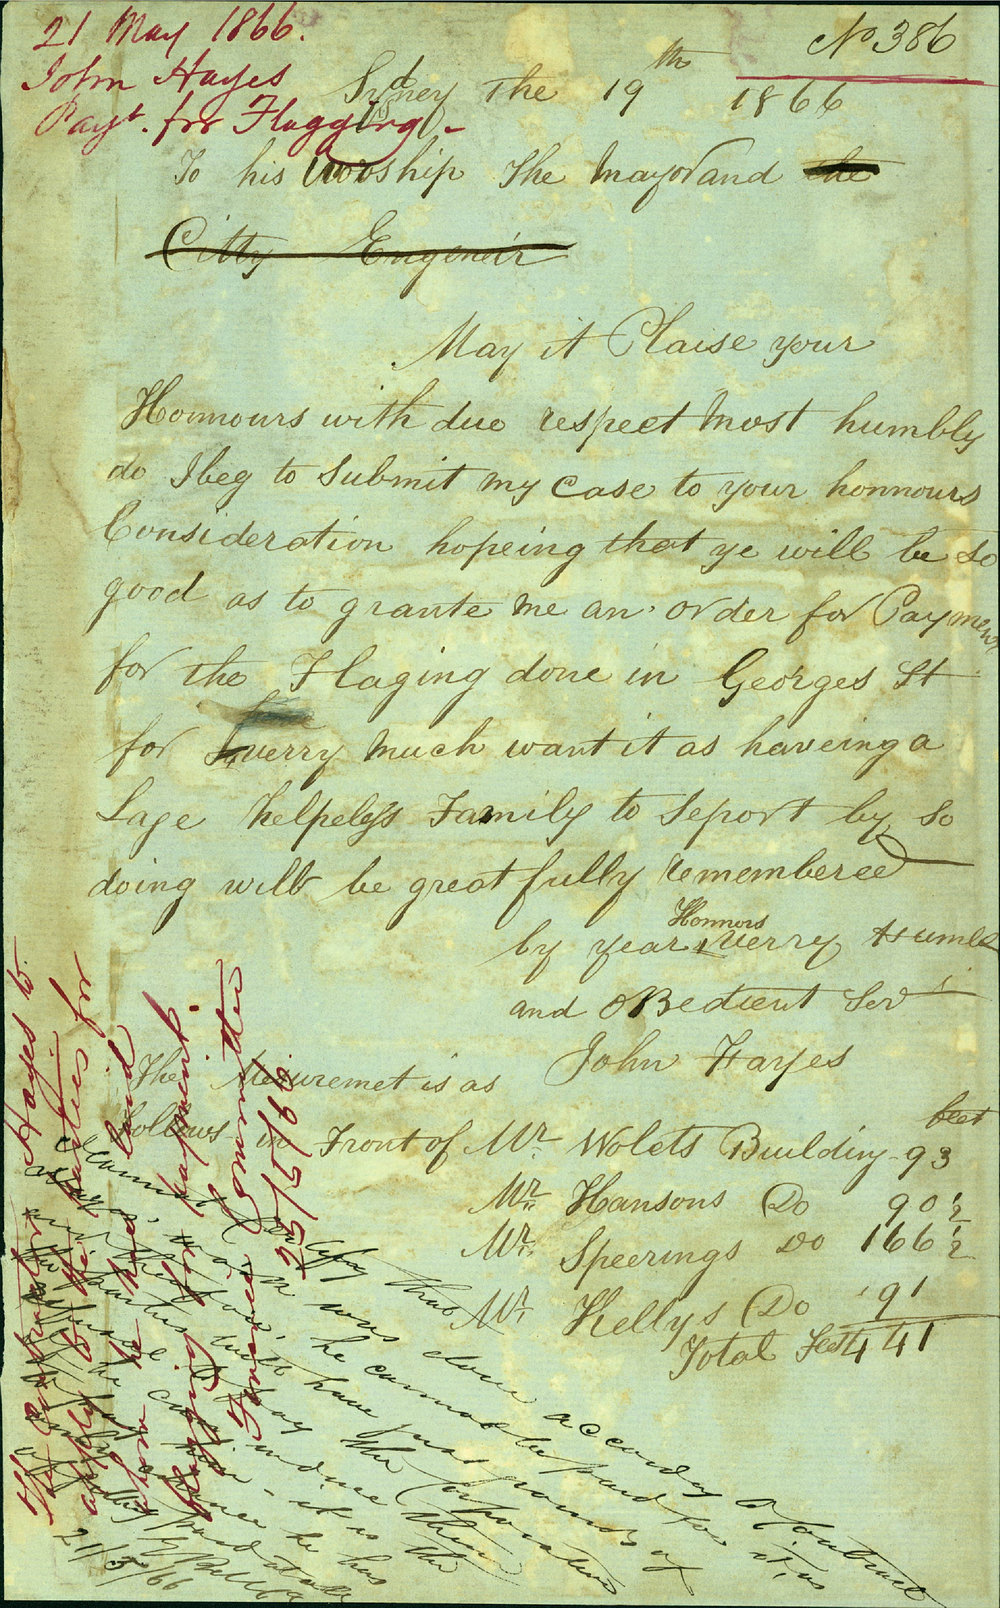 21 May 1866.
John Hayes
Payt. for Flagging -
No 386
Sydney The 19th 1866
To his Worship The Mayor and the
Citty Engeneir
May it Plaise your
Honnours with due respect most humbly
do I beg to Submit my case to your honnours
Consideration hopeing that ye will be so
good as to grante me an order for Payment
for the Flaging done in Georges St
for I verry much want it as haveing a
Lage helpeless Family to Seport by so
doing will be greatfully remembered
by year Honnors verry Humble
and OBedient Servt
John Hayes
The Mesuremet is as
follows in Front of Mr. Wolets Building 93 feet
Mr Hansons Do 90 1/2
Mr. Speerings Do 166 1/2
Mr Kellys Do 91
Total Feet 441
Hayes to
apply to the parties for
whom he has laid
flagging for payment.
Finance Committee
25/5/66
I cannot certify that
was done according to Contract
therefore, he cannot be paid for it, as
parties will have just grounds of
refusal to pay the Corporation
21/5/66